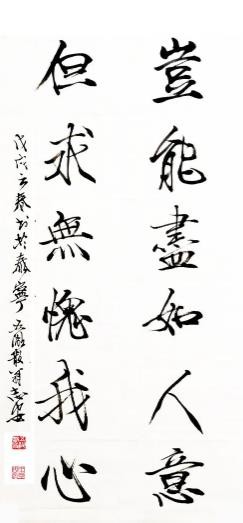 豈能盡如人意
但求無愧我心
戊戌之春书於泰寧